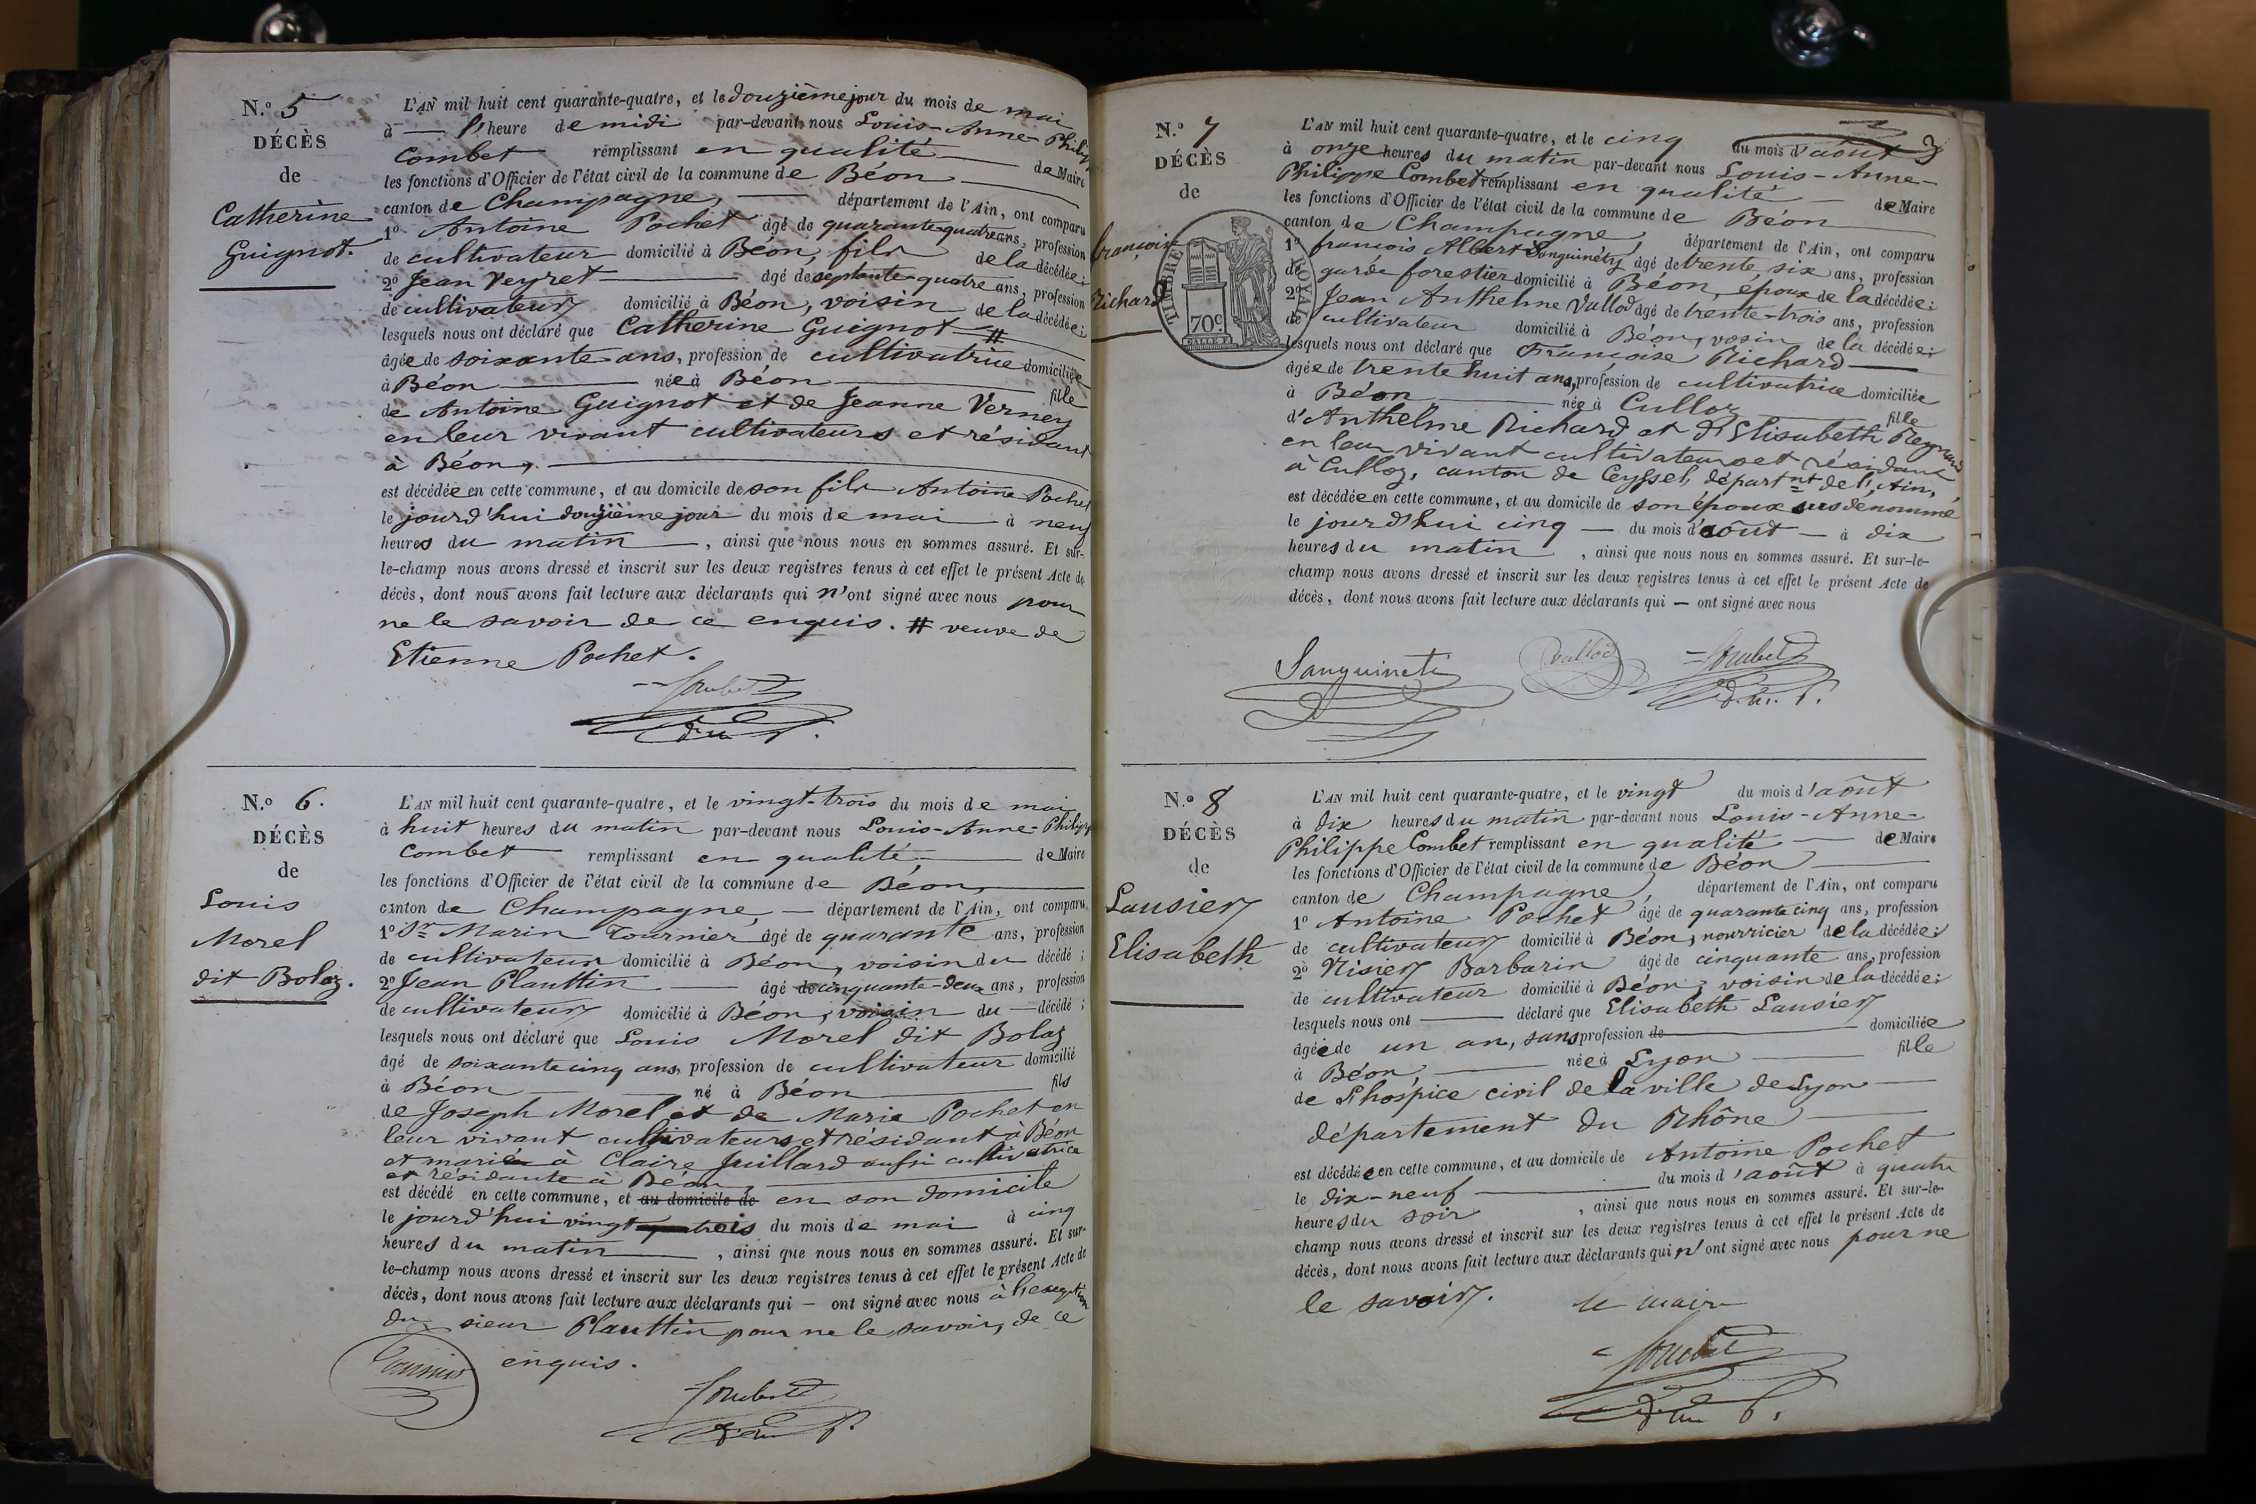 N.o 5
DÉCÈS
de
Catherine
Guignot.
L'AN mil huit cent quarante-quatre, et le douzième jour du mois de mai
à — l'heure de midi par-devant nous Louis-Anne-Philip
Combet remplissant en qualité — de Maire
les fonctions d'Officier de l'état civil de la commune de Béon
canton de Champagne, département de l'Ain, ont comparu
1o Antoine Pochet âgé de quarante-quatre ans, profession
de cultivateur domicilié à Béon, fils de la décédée;
2o Jean Veyret — âgé de septante-quatre ans, profession
de cultivateur domicilié à Béon, voisin de la décédée;
lesquels nous ont déclaré que Catherine Guignot #
âgée de soixante ans, profession de cultivatrice domiciliée
à Béon — née à Béon — fille
de Antoine Guignot et de Jeanne Verney
en leur vivant cultivateurs et résidant
à Béon,
est décédée en cette commune, et au domicile de son fils Antoine Pochet
le jourd'hui douzième jour du mois de mai à neuf
heures du matin —, ainsi que nous nous en sommes assuré. Et sur-
le-champ nous avons dressé et inscrit sur les deux registres tenus à cet effet le présent Acte de
décès, dont nous avons fait lecture aux déclarants qui n'ont signé avec nous pour
ne le savoir de ce enquis. # veuve de
Etienne Pochet.
Combet
N.o 6.
DÉCÈS
de
Louis
Morel
dit Bolaz.
L'AN mil huit cent quarante-quatre, et le vingt-trois du mois de mai
à huit heures du matin par-devant nous Louis-Anne-Philipp
Combet remplissant en qualité — de Maire
les fonctions d'Officier de l'état civil de la commune de Béon,
canton de Champagne, — département de l'Ain, ont comparu
1o Sr Marin Tournier âgé de quarante ans, profession
de cultivateur domicilié à Béon, voisin du décédé;
2o Jean Plauttin — âgé de cinquante-deux ans, profession
de cultivateur domicilié à Béon, voisin du — décédé;
lesquels nous ont déclaré que Louis Morel dit Bolaz
âgé de soixante cinq ans, profession de cultivateur domicilié
à Béon — né à Béon — fils
de Joseph Morel et de Marie Pochet en
leur vivant cultivateurs et résidant à Béon
et marié à Claire Juillard aussi cultivatrice
et résidante à Béon,
est décédé en cette commune, et au domicile de en son domicile
le jourd'hui vingt trois du mois de mai à cinq
heures du matin —, ainsi que nous nous en sommes assuré. Et sur-
le-champ nous avons dressé et inscrit sur les deux registres tenus à cet effet le présent Acte de
décès, dont nous avons fait lecture aux déclarants qui — ont signé avec nous à l'exception
du sieur Plauttin pour ne le savoir, de ce
enquis.
Tournier
Combet
N.o 7
DÉCÈS
de
françoise
Richard
TIMBRE ROYAL
70c
3
L'AN mil huit cent quarante-quatre, et le cinq du mois d'août
à onze heures du matin par-devant nous Louis-Anne-
Philippe Combet remplissant en qualité — de Maire
les fonctions d'Officier de l'état civil de la commune de Béon
canton de Champagne, département de l'Ain, ont comparu
1o françois Albert Sanguinéty âgé de trente six ans, profession
de garde forestier domicilié à Béon, époux de la décédée;
2o Jean Anthelme Vallod âgé de trente-trois ans, profession
de cultivateur domicilié à Béon, vosin de la décédée;
lesquels nous ont déclaré que Françoise Richard —
âgée de trente huit ans, profession de cultivatrice domiciliée
à Béon — née à Culloz — fille
d'Anthelme Richard et d'Elisabeth Reynaud
en leur vivant cultivateurs et résidant
à Culloz, canton de Ceyssel, départnt de l'Ain,
est décédée en cette commune, et au domicile de son époux susdénommé
le jourd'hui cinq — du mois d'août — à dix
heures du matin, ainsi que nous nous en sommes assuré. Et sur-le-
champ nous avons dressé et inscrit sur les deux registres tenus à cet effet le présent Acte de
décès, dont nous avons fait lecture aux déclarants qui — ont signé avec nous
Sanguineti
Vallod
Combet
N.o 8
DÉCÈS
de
Lausier
Elisabeth
L'AN mil huit cent quarante-quatre, et le vingt du mois d'août
à dix heures du matin par-devant nous Louis-Anne-
Philippe Combet remplissant en qualité — de Maire
les fonctions d'Officier de l'état civil de la commune de Béon
canton de Champagne, département de l'Ain, ont comparu
1o Antoine Pochet âgé de quarante cinq ans, profession
de cultivateur domicilié à Béon, nourricier de la décédée;
2o Nisier Barbarin âgé de cinquante ans, profession
de cultivateur domicilié à Béon, voisin de la décédée;
lesquels nous ont — déclaré que Elisabeth Lausier
âgée de un an, sans profession de — domiciliée
à Béon, — née à Lyon — fille
de l'hospice civil de la ville de Lyon —
département du Rhône —
est décédée en cette commune, et au domicile de Antoine Pochet
le dix-neuf — du mois d'août à quatre
heures du soir, ainsi que nous nous en sommes assuré. Et sur-le-
champ nous avons dressé et inscrit sur les deux registres tenus à cet effet le présent Acte de
décès, dont nous avons fait lecture aux déclarants qui n'ont signé avec nous pour ne
le savoir.
le maire
Combet